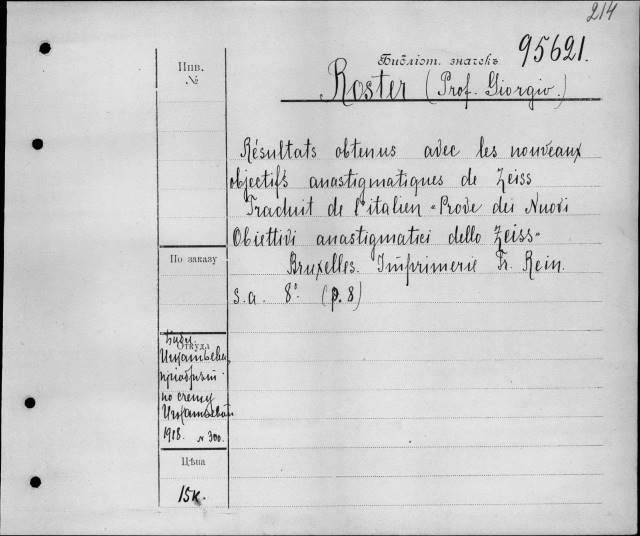 214
Инв.
№
Библіот. значекъ 95621.
Roster (Prof. Giorgio.)
Résultats obtenus avec les nouveaux
objectifs anastigmatiques de Zeiss
Traduit de l'italien "Prove dei Nuovi
Obiettivi anastigmatici dello Zeiss"
Bruxelles. Imprimerie Fr. Rein.
s.a. 8° (p. 8)
По заказу
Откуда
по счету
1918. № 300.
Цѣна
15к.